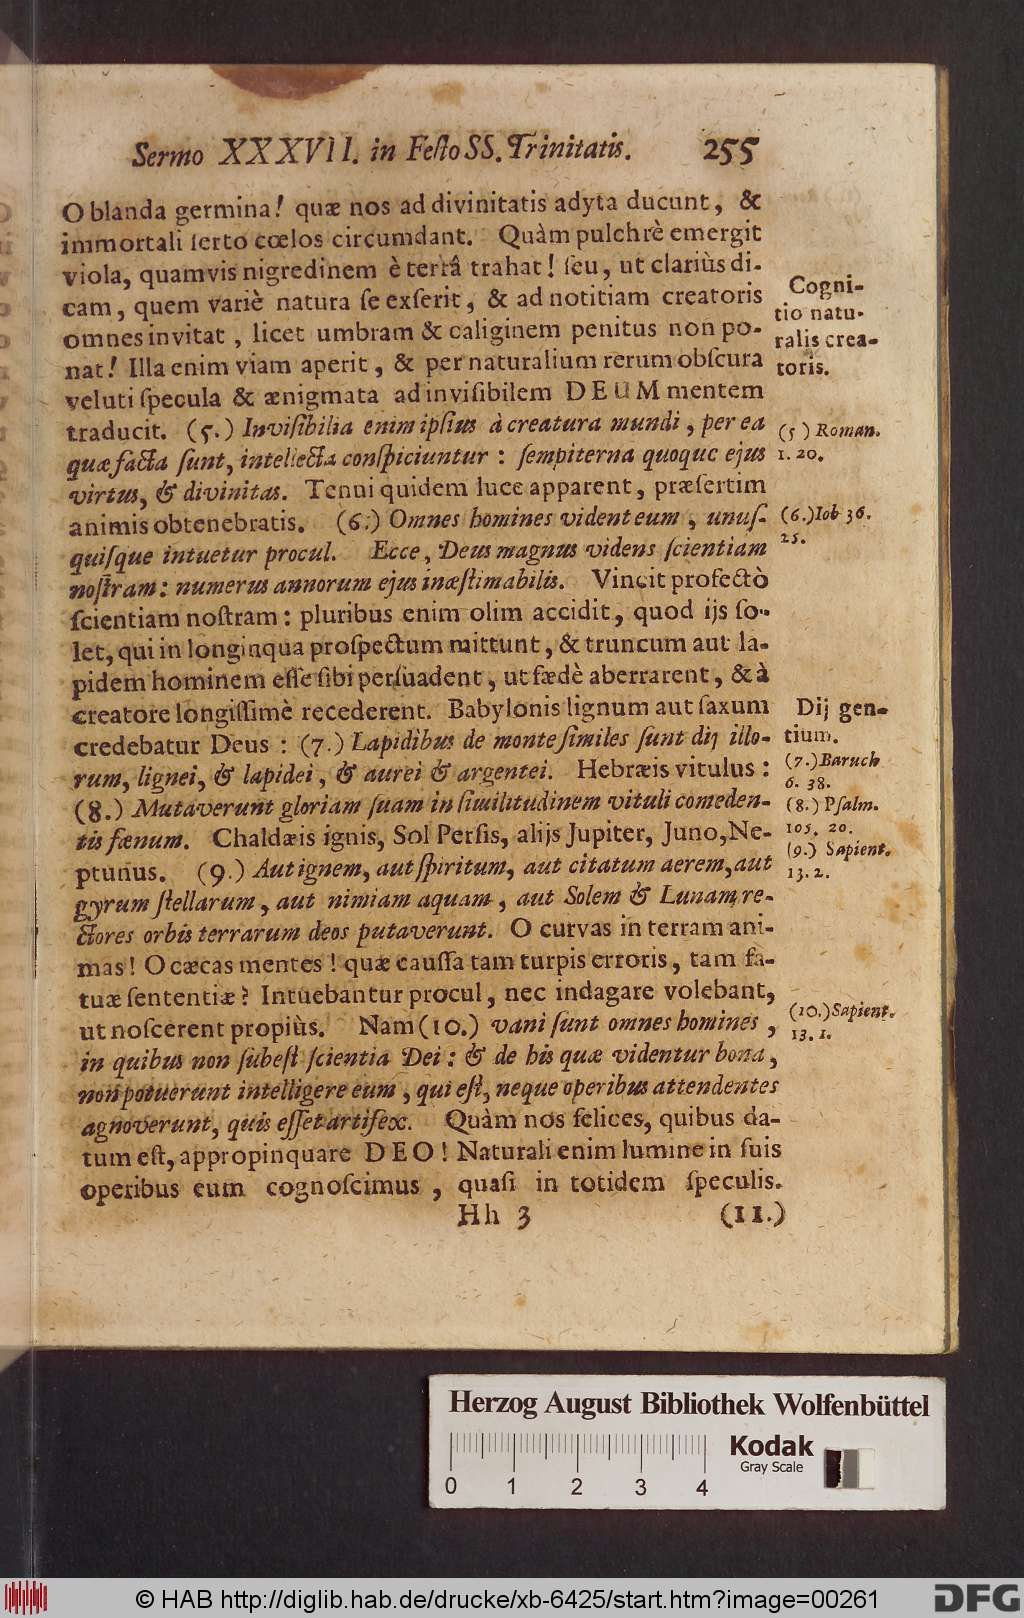 Sermo XXXVII. in Festo SS. Trinitatis. 255
O blanda germina! quæ nos ad divinitatis adyta ducunt, &
immortali ſerto cœlos circumdant. Quàm pulchrè emergit
viola, quamvis nigredinem è terrâ trahat! ſeu, ut clariùs di-
cam, quem variè natura ſe exſerit, & ad notitiam creatoris
omnes invitat, licet umbram & caliginem penitus non po-
nat! Illa enim viam aperit, & per naturalium rerum obſcura
veluti ſpecula & ænigmata ad inviſibilem DEUM mentem
traducit. (5.) Inviſibilia enim ipſius à creatura mundi, per ea
quæ facta ſunt, intellecta conſpiciuntur: ſempiterna quoque ejus
virtus, & divinitas. Tenui quidem luce apparent, præſertim
animis obtenebratis. (6.) Omnes homines vident eum, unuſ-
quiſque intuetur procul. Ecce, Deus magnus videns ſcientiam
noſtram: numerus annorum ejus inæſtimabilis. Vincit profectò
ſcientiam noſtram: pluribus enim olim accidit, quod ijs ſo-
let, qui in longinqua proſpectum mittunt, & truncum aut la-
pidem hominem eſſe ſibi perſuadent, ut fædè aberrarent, & à
creatore longiſſimè recederent. Babylonis lignum aut ſaxum
credebatur Deus: (7.) Lapidibus de monte ſimiles ſunt dij illo-
rum, lignei, & lapidei, & aurei & argentei. Hebræis vitulus:
(8.) Mutaverunt gloriam ſuam in ſimilitudinem vituli comeden-
tis fænum. Chaldæis ignis, Sol Perſis, alijs Jupiter, Juno, Ne-
ptunus. (9.) Aut ignem, aut ſpiritum, aut citatum aerem, aut
gyrum ſtellarum, aut nimiam aquam, aut Solem & Lunam, re-
ctores orbis terrarum deos putaverunt. O curvas in terram ani-
mas! O cæcas mentes! quæ cauſſa tam turpis erroris, tam fa-
tuæ ſententiæ? Intuebantur procul, nec indagare volebant,
ut noſcerent propiùs. Nam (10.) vani ſunt omnes homines,
in quibus non ſubeſt ſcientia Dei: & de his quæ videntur bona,
non potuerunt intelligere eum, qui eſt, neque operibus attendentes
agnoverunt, quis eſſet artifex. Quàm nos felices, quibus da-
tum eſt, appropinquare DEO! Naturali enim lumine in ſuis
operibus eum cognoſcimus, quaſi in totidem ſpeculis.
Hh 3 (11.)
Cogni-
tio natu-
ralis crea-
toris.
(5) Roman.
1. 20.
(6.) Iob 36.
25.
Dij gen-
tium.
(7.) Baruch
6. 38.
(8.) Pſalm.
105. 20.
(9.) Sapient.
13. 2.
(10.) Sapient.
13. 1.
Herzog August Bibliothek Wolfenbüttel
Kodak
Gray Scale
0 1 2 3 4
© HAB http://diglib.hab.de/drucke/xb-6425/start.htm?image=00261
DFG